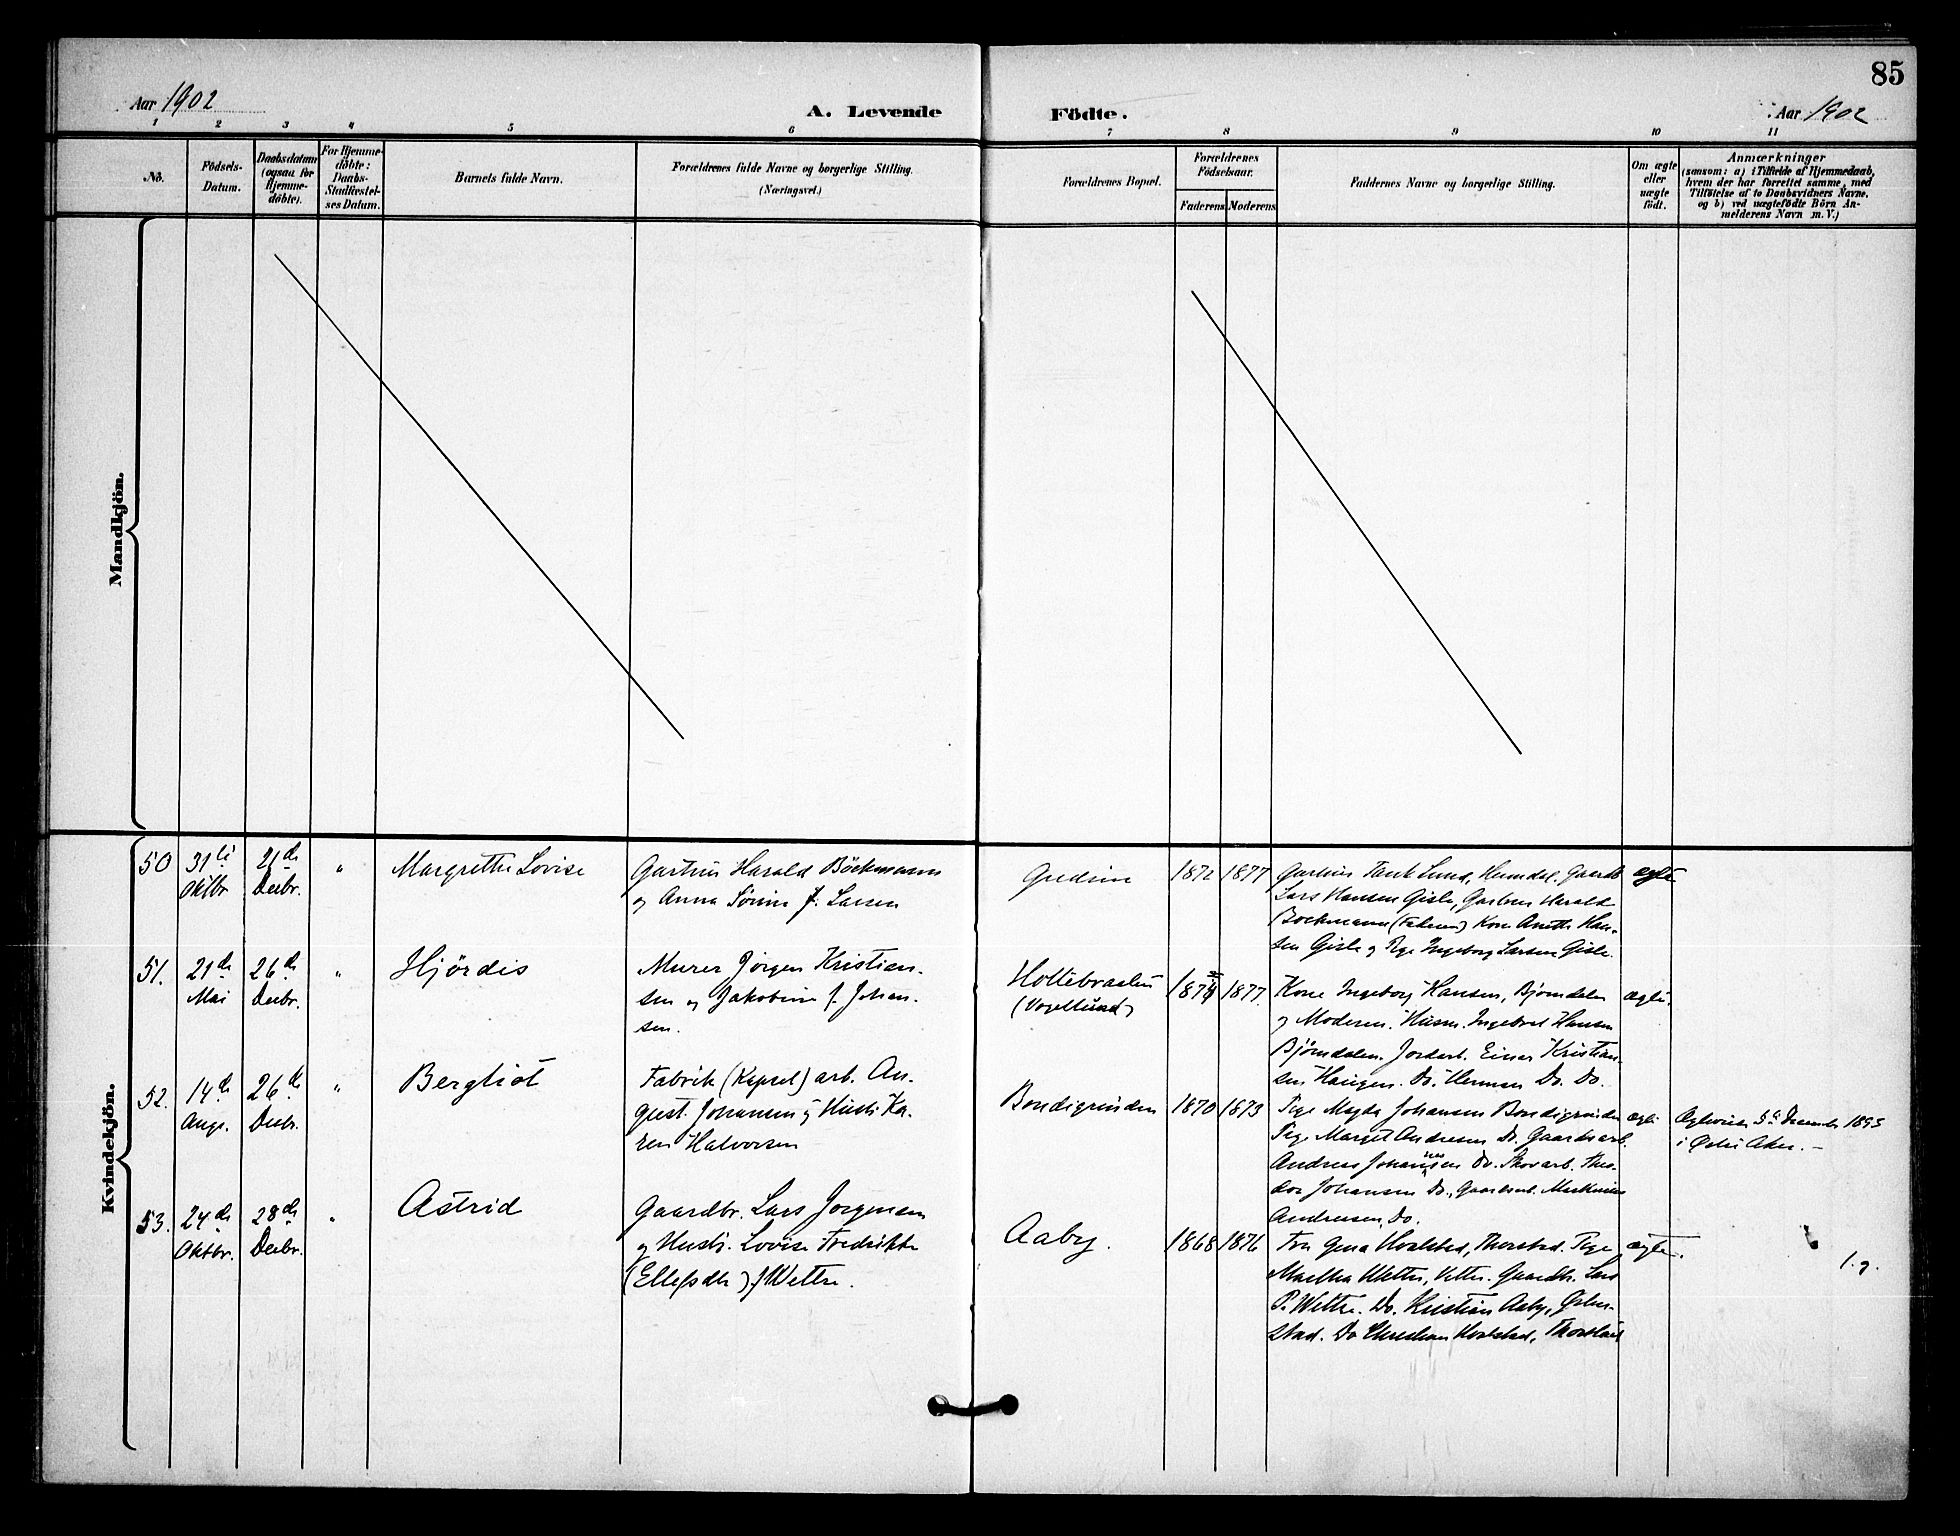 85
Aar 1902
A. Levende
Födte.
Aar 1902
1 2 3 4 5 6 7 8 9 10 11
No.
Födsels-
Datum.
Daabsdatum
(ogsaa for
Hjemme-
döbte).
For Hjemme-
döbte:
Daabs-
Stadfæstel-
ses Datum.
Barnets fulde Navn.
Forældrenes fulde Navne og borgerlige Stilling.
(Næringsvei.)
Forældrenes Bopæl.
Forældrenes
Födselsaar.
Faderens Moderens
Faddernes Navne og borgerlige Stilling.
Om ægte
eller
uægte
födt.
Anmærkninger
(saasom: a) i Tilfælde af Hjemmedaab,
hvem der har forrettet samme, med
Tilföielse af to Daabsvidners Navne,
og b) ved uægtefödte Börn An-
melderens Navn m. V.)
Mandkjön.
Kvindekjön.
50
31te
Oktbr
21de
Decbr.
"
Margrethe Lovise
Gartner Harald Böckmann
og Anna Sörine f. Larsen
1872
1877
Gartner Tank Lund, Humdal. Gaardb
Lars Hansen Gisle, Gartner Harald
Bockmann (Faderen) Kone Anette Han-
sen Gisle og Pige Ingeborg Larsen Gisle.
ægte
51.
21de
Mai
26de
Decbr.
"
Hjördis
Murer Jörgen Kristian-
sen og Jakobine f. Johan-
sen.
Holtebraaten
(Vogellund)
1877.
Kone Ingeborg Hansen, Bjorndalen
og Moderen. Husm. Ingebret Hansen
Bjorndalen. Jordarb. Einar Kristian-
sen Haugen. Do. Herman Do. Do.
ægte.
52.
14de
Aug.
26de
Decbr.
"
Bergliot
Fabrik (Kapsel) arb. Au-
gust Johansen og Hustr. Ka-
ren Halvorsen
Bondigrinden
1870
1873
Pige Magda Johansen Bondigrinden
Pige Margit Andresen Do. Gaardsarb.
Andreas Johannesen Do. Skovarb. Theo-
dor Johansen Do., Gaardsarb.
Andresen, Do.
ægte
Ægteviede 5te December 1895
i Östre Aker. —
53.
24de
Oktbr.
28de
Decbr.
"
Astrid
Gaardbr. Lars Jorgensen
og Hustr. Lovise Fredrikke
(Ellefsdtr) f. Wettre.
Aaby.
1868
1876
Fru Gina Hvalstad, Thorstad. Pige
Martha Wettre, Vettre. Gaardbr. Lars
P. Wettre. Do. Kristian Aaby,
stad. Do Christian Hvalstad, Thorstad
ægte.